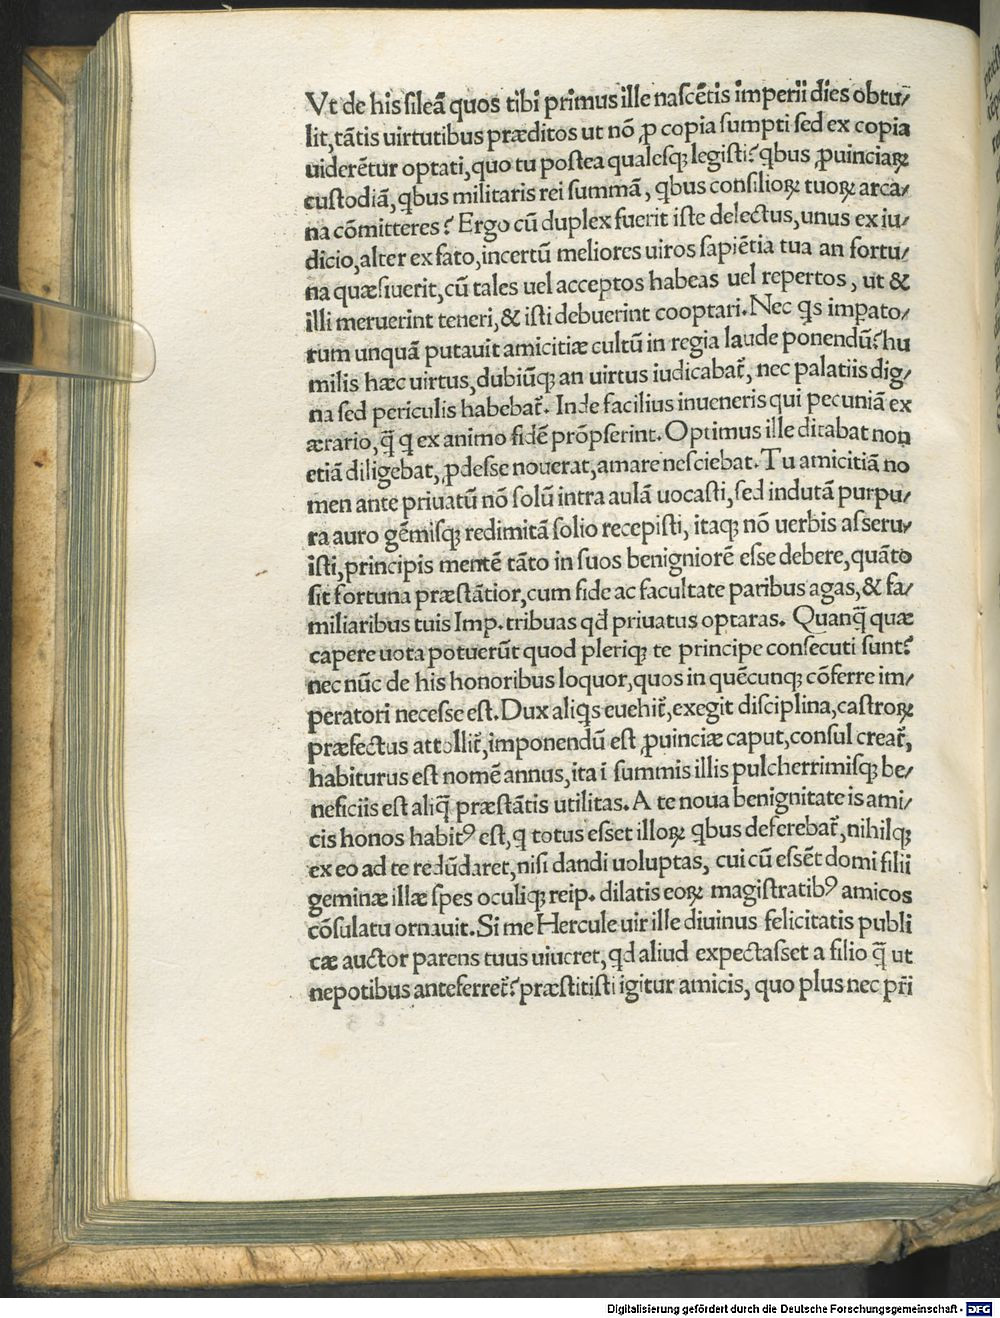 Vt de his ſileã quos tibi primus ille naſcẽtis imperii dies obtu/
lit, tãtis uirtutibus præditos ut nõ ꝓ copia ſumpti ſed ex copia
uiderẽtur optati, quo tu poſtea qualeſqꝫ legiſti? qbus ꝓuinciaꝝ
cuſtodiã, qbus militaris rei ſummã, qbus conſilioꝝ tuoꝝ arca/
na cõmitteres? Ergo cũ duplex fuerit iſte delectus, unus ex iu/
dicio, alter ex fato, incertũ meliores uiros ſapiẽtia tua an fortu/
na quæſiuerit, cũ tales uel acceptos habeas uel repertos, ut &
illi meruerint teneri, & iſti debuerint cooptari. Nec qs impato/
rum unquã putauit amicitiæ cultũ in regia laude ponendũ? hu
milis hæc uirtus, dubiũqꝫ an uirtus iudicabat̃, nec palatiis dig/
na ſed periculis habebat̃. Inde facilius inueneris qui pecuniã ex
ærario, q̃ q ex animo fidẽ prõpſerint. Optimus ille ditabat non
etiã diligebat, ꝓdeſſe nouerat, amare neſciebat. Tu amicitiã no
men ante priuatũ nõ ſolũ intra aulã uocaſti, ſed indutã purpu/
ra auro gẽmiſqꝫ redimitã ſolio recepiſti, itaqꝫ nõ uerbis aſſeru/
iſti, principis mentẽ tãto in ſuos benigniorẽ eſſe debere, quãto
ſit fortuna præſtãtior, cum fide ac facultate paribus agas, & fa/
miliaribus tuis Imp. tribuas qd priuatus optaras. Quanq̃ quæ
capere uota potuerũt quod pleriqꝫ te principe conſecuti ſunt?
nec nũc de his honoribus loquor, quos in quẽcunqꝫ cõferre im/
peratori neceſſe eſt. Dux aliqs euehit̃, exegit diſciplina, caſtroꝝ
præfectus attollit̃, imponendũ eſt ꝓuinciæ caput, conſul creat̃,
habiturus eſt nomẽ annus, ita ĩ ſummis illis pulcherrimiſqꝫ be/
neficiis eſt aliq̃ præſtãtis utilitas. A te noua benignitate is ami/
cis honos habitꝰ eſt, q totus eſſet illoꝝ qbus deferebat̃, nihilqꝫ
ex eo ad te redũdaret, niſi dandi uoluptas, cui cũ eſſẽt domi filii
geminæ illæ ſpes oculiqꝫ reip. dilatis eoꝝ magiſtratibꝰ amicos
cõſulatu ornauit. Si me Hercule uir ille diuinus felicitatis publi
cæ auctor parens tuus uiueret, qd aliud expectaſſet a filio q̃ ut
nepotibus anteferret̃? præſtitiſti igitur amicis, quo plus nec pr̃i
Digitalisierung gefördert durch die Deutsche Forschungsgemeinschaft - DFG